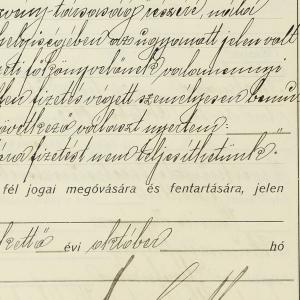 részvény társaság részére, nála
helyiségében az ugyanott jelen volt
főkönyvelőnek valamennyi
fizetés végett személyesen bemu-
következő választ nyertem:
fizetést nem teljesíthetünk.
fél jogai megóvására és fentartására, jelen
kettő évi október hó